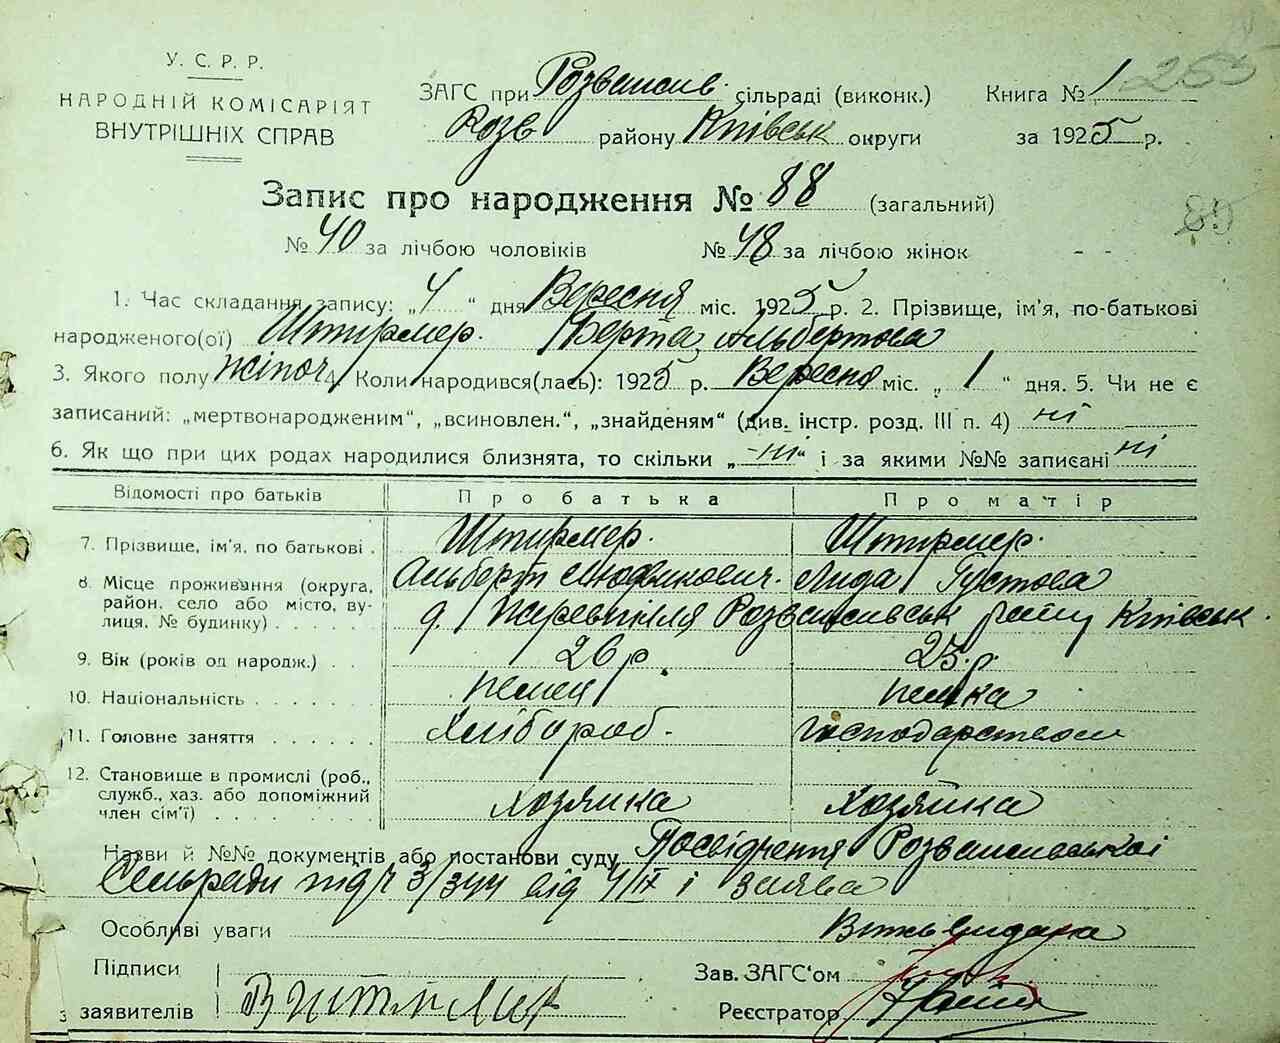 У. С. Р. Р.
НАРОДНІЙ КОМІСАРІЯТ
ВНУТРІШНІХ СПРАВ
ЗАГС при Розважив. сільраді (виконк.) Книга № 1 265
Розв району Київськ округи за 1925 р.
Запис про народження № 88 (загальний)
89
№ 40 за лічбою чоловіків № 48 за лічбою жінок
1. Час складання запису: „4“ дня Вересня міс. 1925 р. 2. Прізвище, ім'я, по-батькові
народженого(ої) Штирмер. Берта Альбертова
3. Якого полу жіноч 4. Коли народився(лась): 1925 р. Вересня міс. „1“ дня. 5. Чи не є
записаний: „мертвонародженим“, „всиновлен.“, „знайденям“ (див. інстр. розд. III п. 4) ні
6. Як що при цих родах народилися близнята, то скільки „-ні“ і за якими №№ записані ні
Відомості про батьків Про батька Про матір
7. Прізвище, ім'я, по батькові. Штирмер. Штирмер.
8. Місце проживання (округа, Альберт Людвикович. Лида Густова
район, село або місто, ву-
лиця, № будинку) . . . . . Розважівськ району Київськ.
9. Вік (років од народж.) . . 26 р. 23 р.
10. Національність . . . . . . немец немка
11. Головне заняття . . . . . . Хлібороб. Господарством
12. Становище в промислі (роб.,
служб., хаз. або допоміжний Хозяина Хозяйка
член сім'ї) . . . . . . . .
Назви й №№ документів або постанови суду Посвідчення Розважівської
Сельради під ч 3/344 від 4/IX і заява
Особливі уваги
Підписи Зав. ЗАГС'ом
заявителів Реєстратор